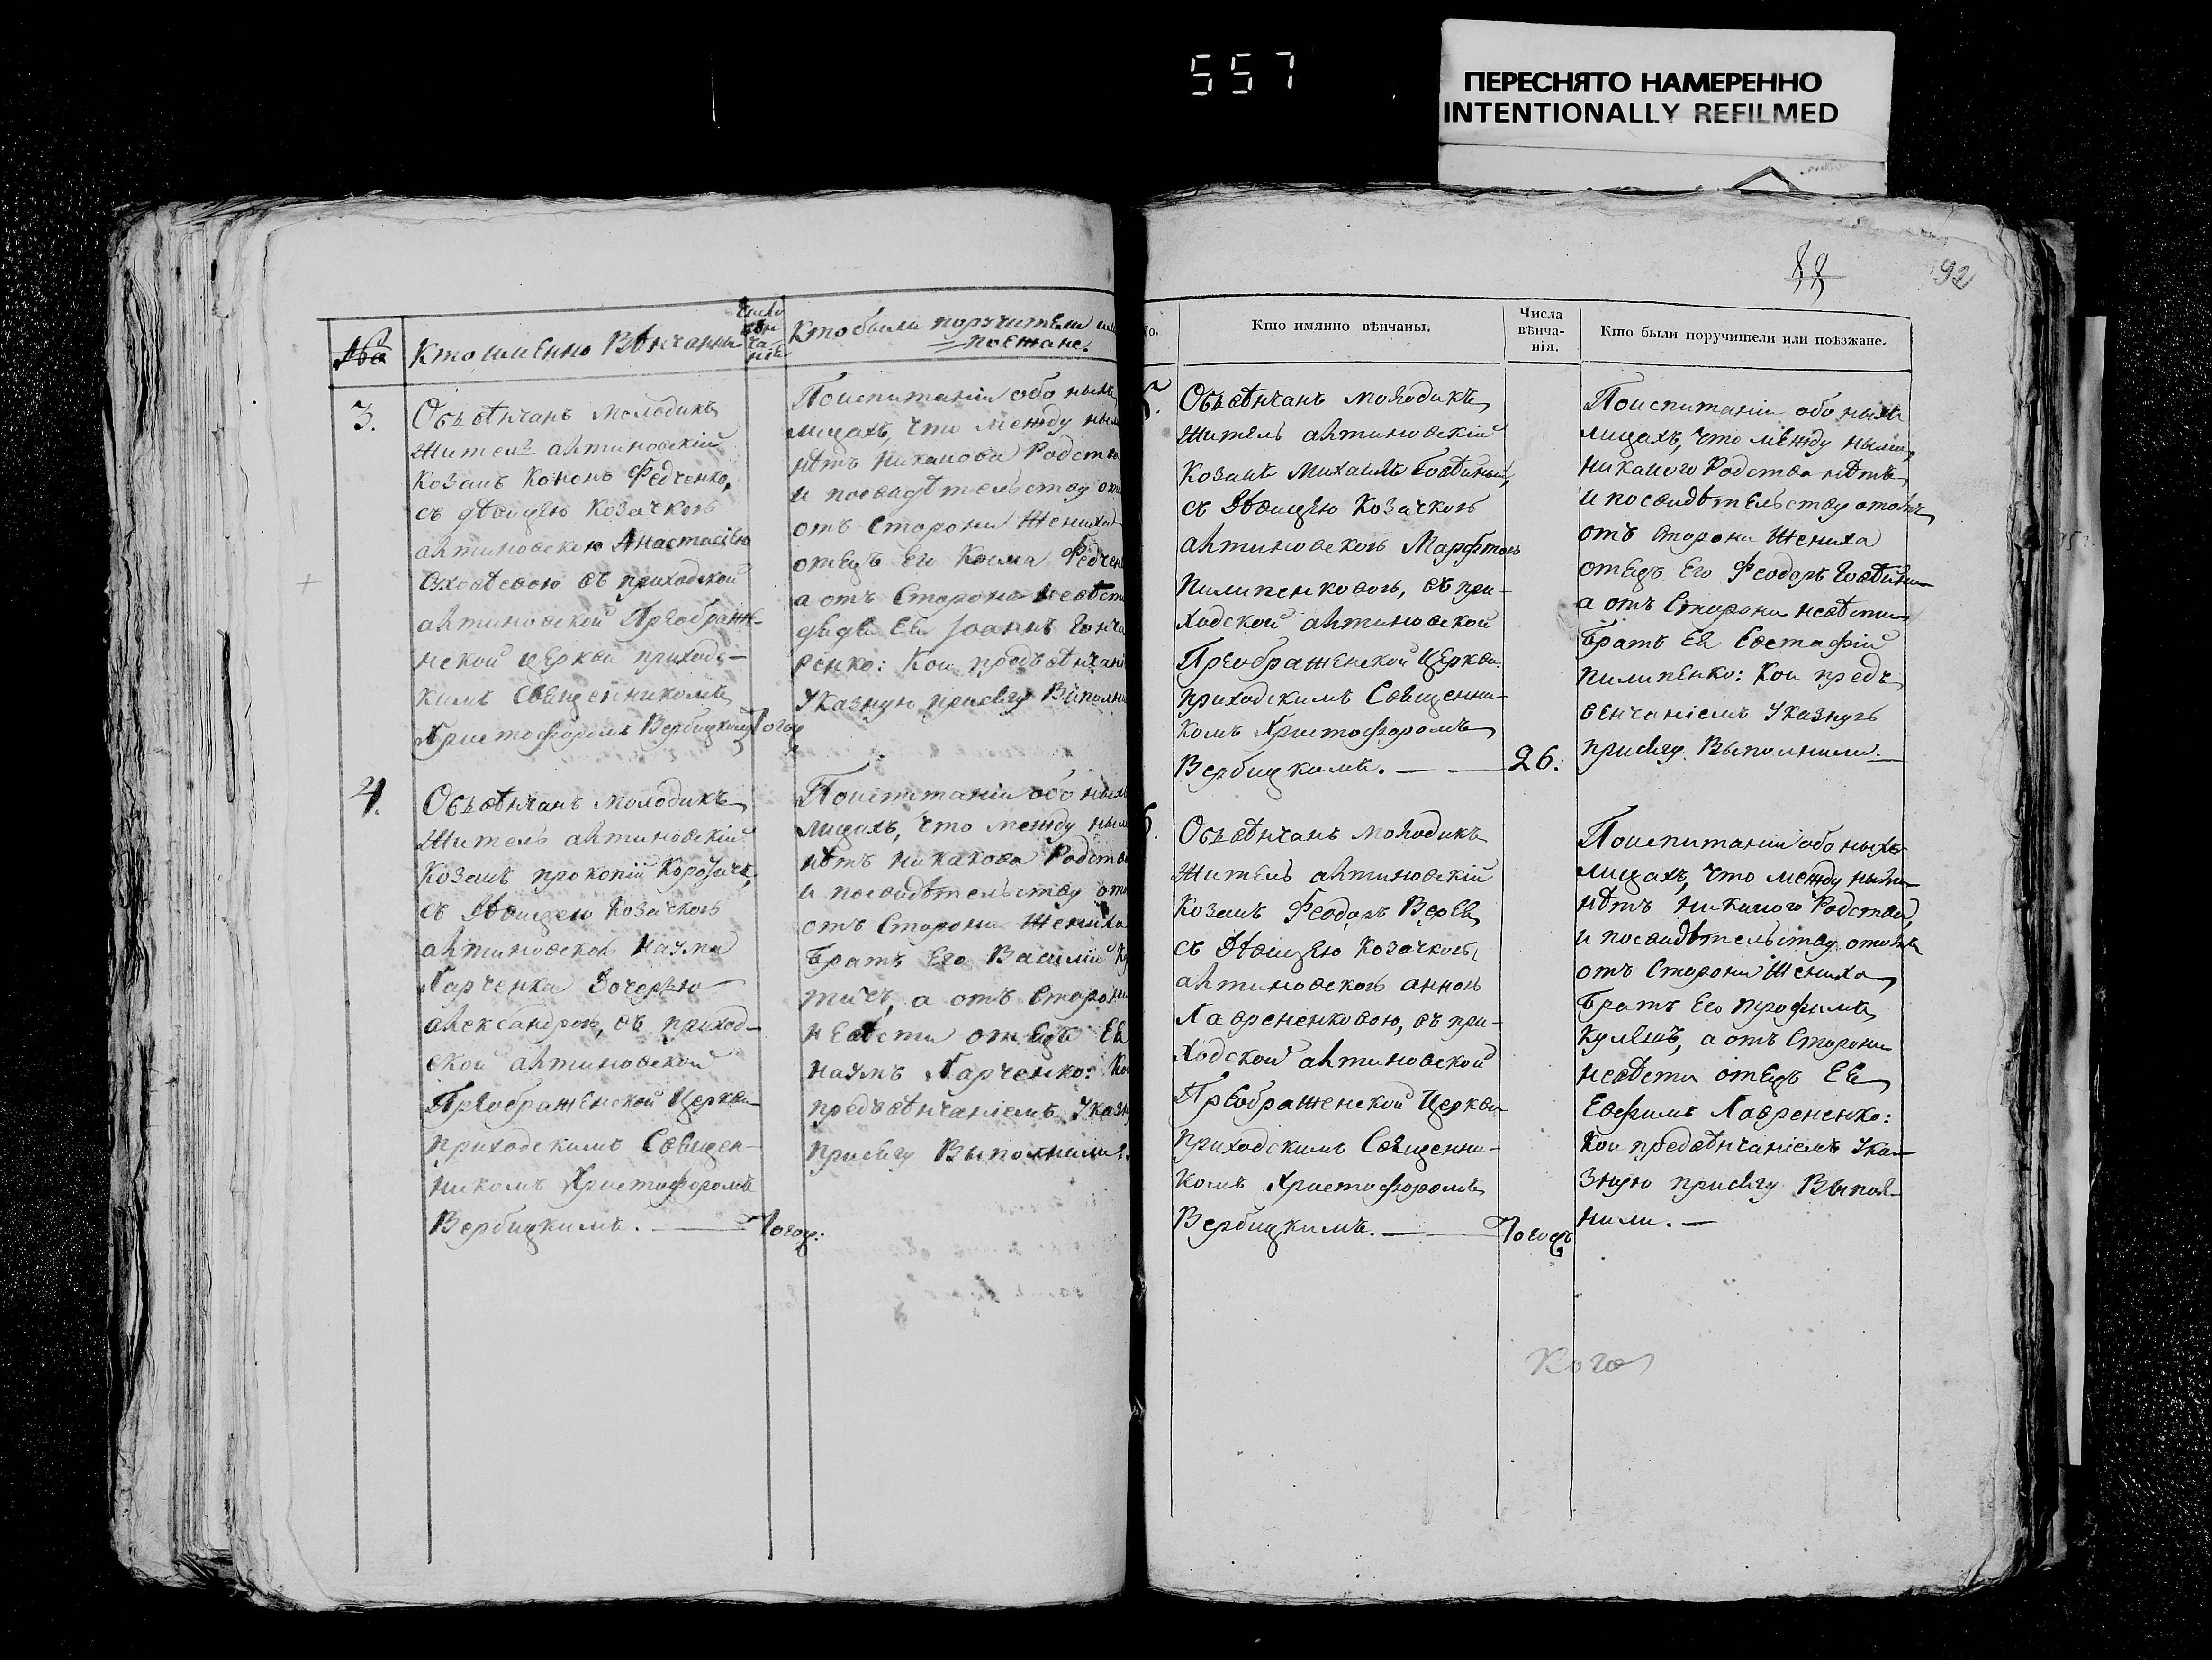 557
ПЕРЕСНЯТО НАМЕРЕННО
INTENTIONALLY REFILMED
88
92
№
Кто именно Вѣнчанны
Число
вѣн
ча-
нія
Кто были поручители или
поезжане.
3.
Обвѣнчанъ молодикъ
Житель алтиновскій
Козакъ Кононъ Федченко,
съ дѣвицею Козачкою
алтиновскою Анастасіею
въ приходской
алтиновской Преображе-
нской церкви приходс-
кимъ Священникомъ
Христофоромъ Вербицкимъ
Тогожъ
Поиспитаніи обо ныхъ
лицахъ, что между ными
нѣтъ никакова Родства
и посвидѣтельству
отъ Стороны Жениха
отецъ Его Косма Федченко
а отъ Стороны невѣсты
дядя Ея Іоаннъ Гонча
ренко: Кои предъ вѣнчані
Указную присягу Виполни
4.
Обвѣнчанъ молодикъ
Житель алтиновскій
Козакъ прокопій
съ Дѣвицею Козачкою
алтиновскою Наума
Харченка Дочерью
александрою, въ приход-
ской алтиновской
Преображенской Церкви
приходскимъ Священ-
никомъ Христофоромъ
Вербицкимъ. —
Тогож:
Поиспитаніи обо ныхъ
лицахъ, что между ными
нѣтъ никакова Родства
и посвидѣтельству
отъ Стороны Жениха
Братъ Его Василій
а отъ Стороны
невѣсти отецъ Ея
Наумъ Харченко: Кои
предъвѣнчаніемъ Указн
присягу Выполнили.
No.
Кто имянно вѣнчаны.
Числа
вѣнча-
нія.
Кто были поручители или поѣзжане.
5.
Обвѣнчанъ молодикъ
Житель алтиновскій
Козакъ Михаилъ
съ Дѣвицею Козачкою
алтиновскою Марфтою
Пилипенковою, въ при-
ходской алтиновской
Преображенской Церкви
приходскимъ Священни-
комъ Христофоромъ
Вербицкимъ. —
26.
Поиспитаніи обо ныхъ
лицахъ, что между ными
никакого Родства нѣтъ
и посвидѣтельству
отъ Стороны Жениха
отецъ Его Феодоръ
а отъ Стороны невѣсти
Братъ Ея Евстафій
пилипенко: Кои предъ
венчаніемъ Указную
присягу Выполнили. —
6.
Обвѣнчанъ молодикъ
Житель алтиновскій
Козакъ Феодоръ
съ Дѣвицею Козачкою,
алтиновскою анною
Лаврененковою, въ при-
ходской алтиновской
Преображенской Церкви
приходскимъ Священни-
комъ Христофоромъ
Вербицкимъ. —
Тогожъ
Поиспитаніи обо ныхъ
лицахъ, что между ными
нѣтъ никакого Родства,
и посвидѣтельству
отъ Стороны Жениха
Братъ Его Трофимъ
а отъ Стороны
невѣсти отецъ Ея
Евфимъ Лаврененко:
Кои предвѣнчаніемъ Ука-
зную присягу Выпол-
нили. —
Кого